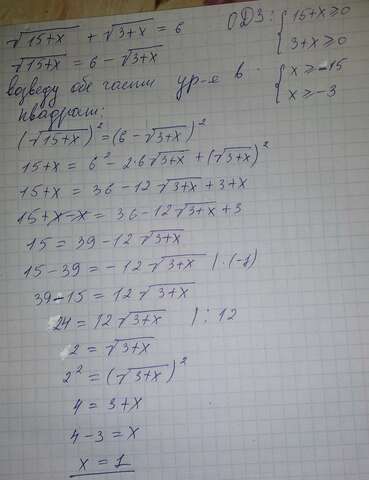 √15+x + √3+x = 6
ОДЗ: { 15+x ≥ 0
3+x ≥ 0
√15+x = 6 - √3+x
{ x ≥ -15
x ≥ -3
возведу обе части ур-е в
квадрат:
(√15+x)² = (6 - √3+x)²
15+x = 6² - 2·6√3+x + (√3+x)²
15+x = 36 - 12√3+x + 3+x
15+x-x = 36 - 12√3+x + 3
15 = 39 - 12√3+x
15 - 39 = -12√3+x | ·(-1)
39 - 15 = 12√3+x
24 = 12√3+x | : 12
2 = √3+x
2² = (√3+x)²
4 = 3+x
4 - 3 = x
x = 1